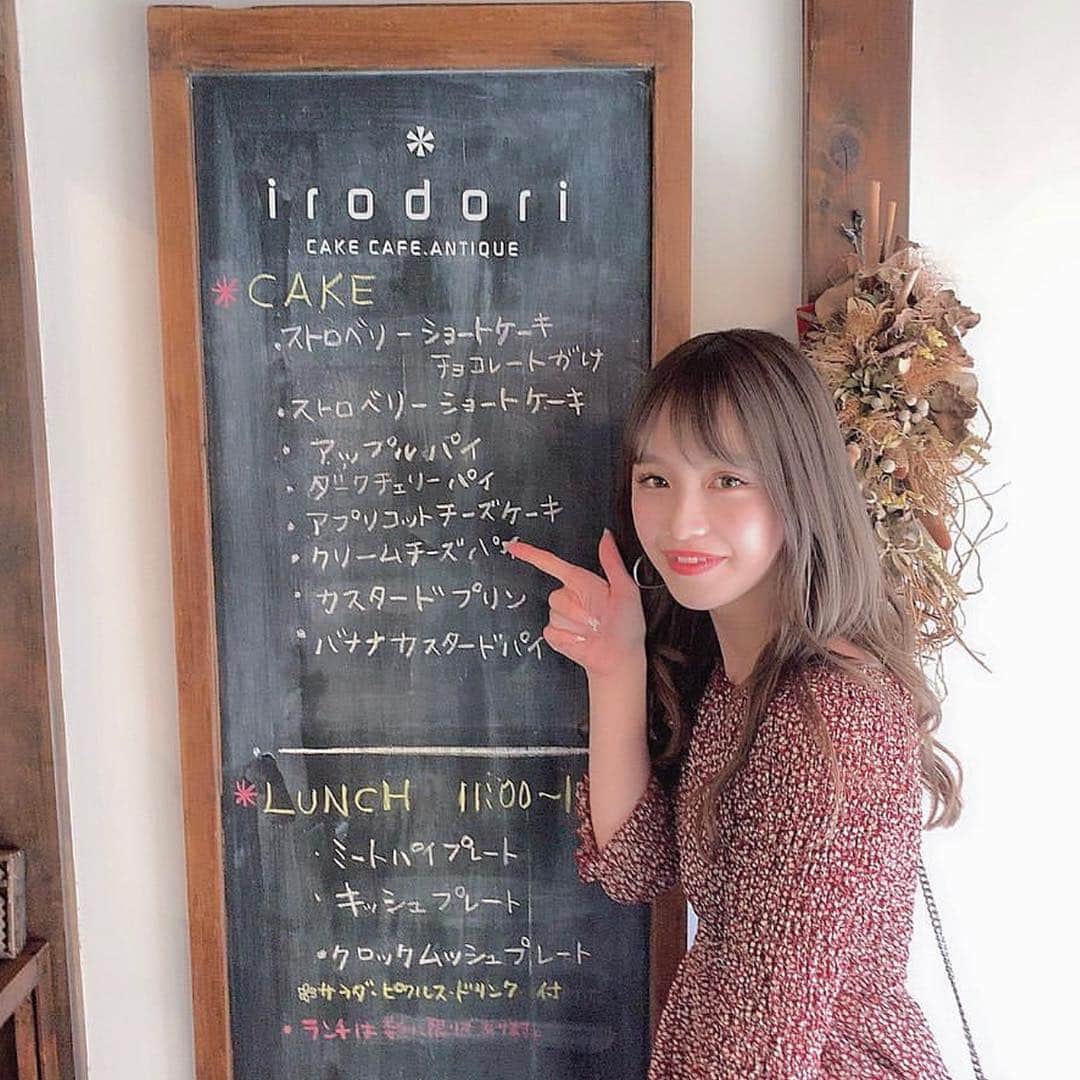 irodori
CAKE CAFE.ANTIQUE
*CAKE
・ストロベリーショートケーキ
チョコレートがけ
・ストロベリーショートケーキ
・アップルパイ
・ダークチェリーパイ
・アプリコットチーズケーキ
・クリームチーズパイ
・カスタードプリン
・バナナカスタードパイ
*LUNCH 11:00~1
・ミートパイプレート
・キッシュプレート
・クロックムッシュプレート
※サラダ・ピクルス・ドリンク付
・ランチは